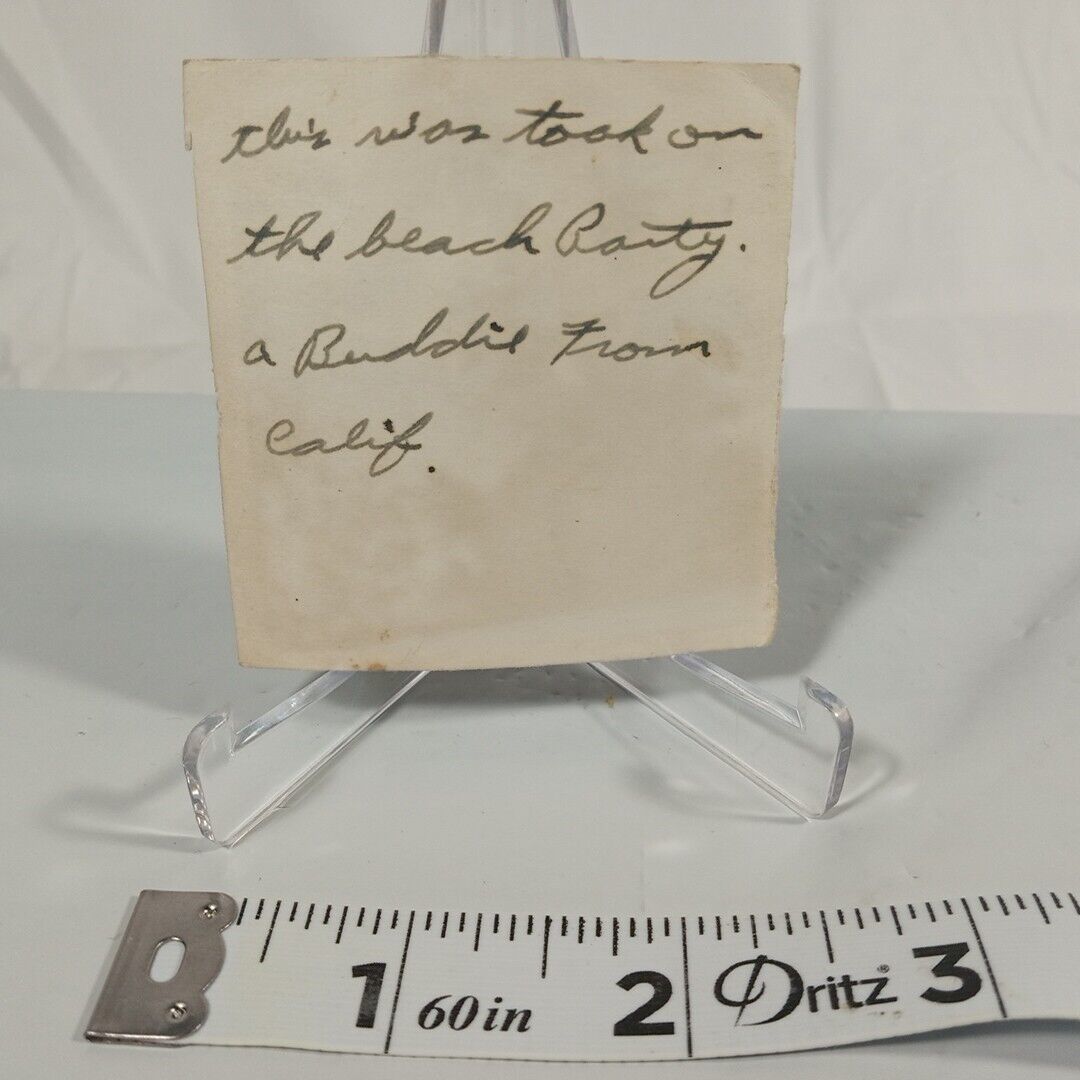 this was took on
the beach Party.
a Buddie From
Calif.
1 60in 2 Dritz® 3